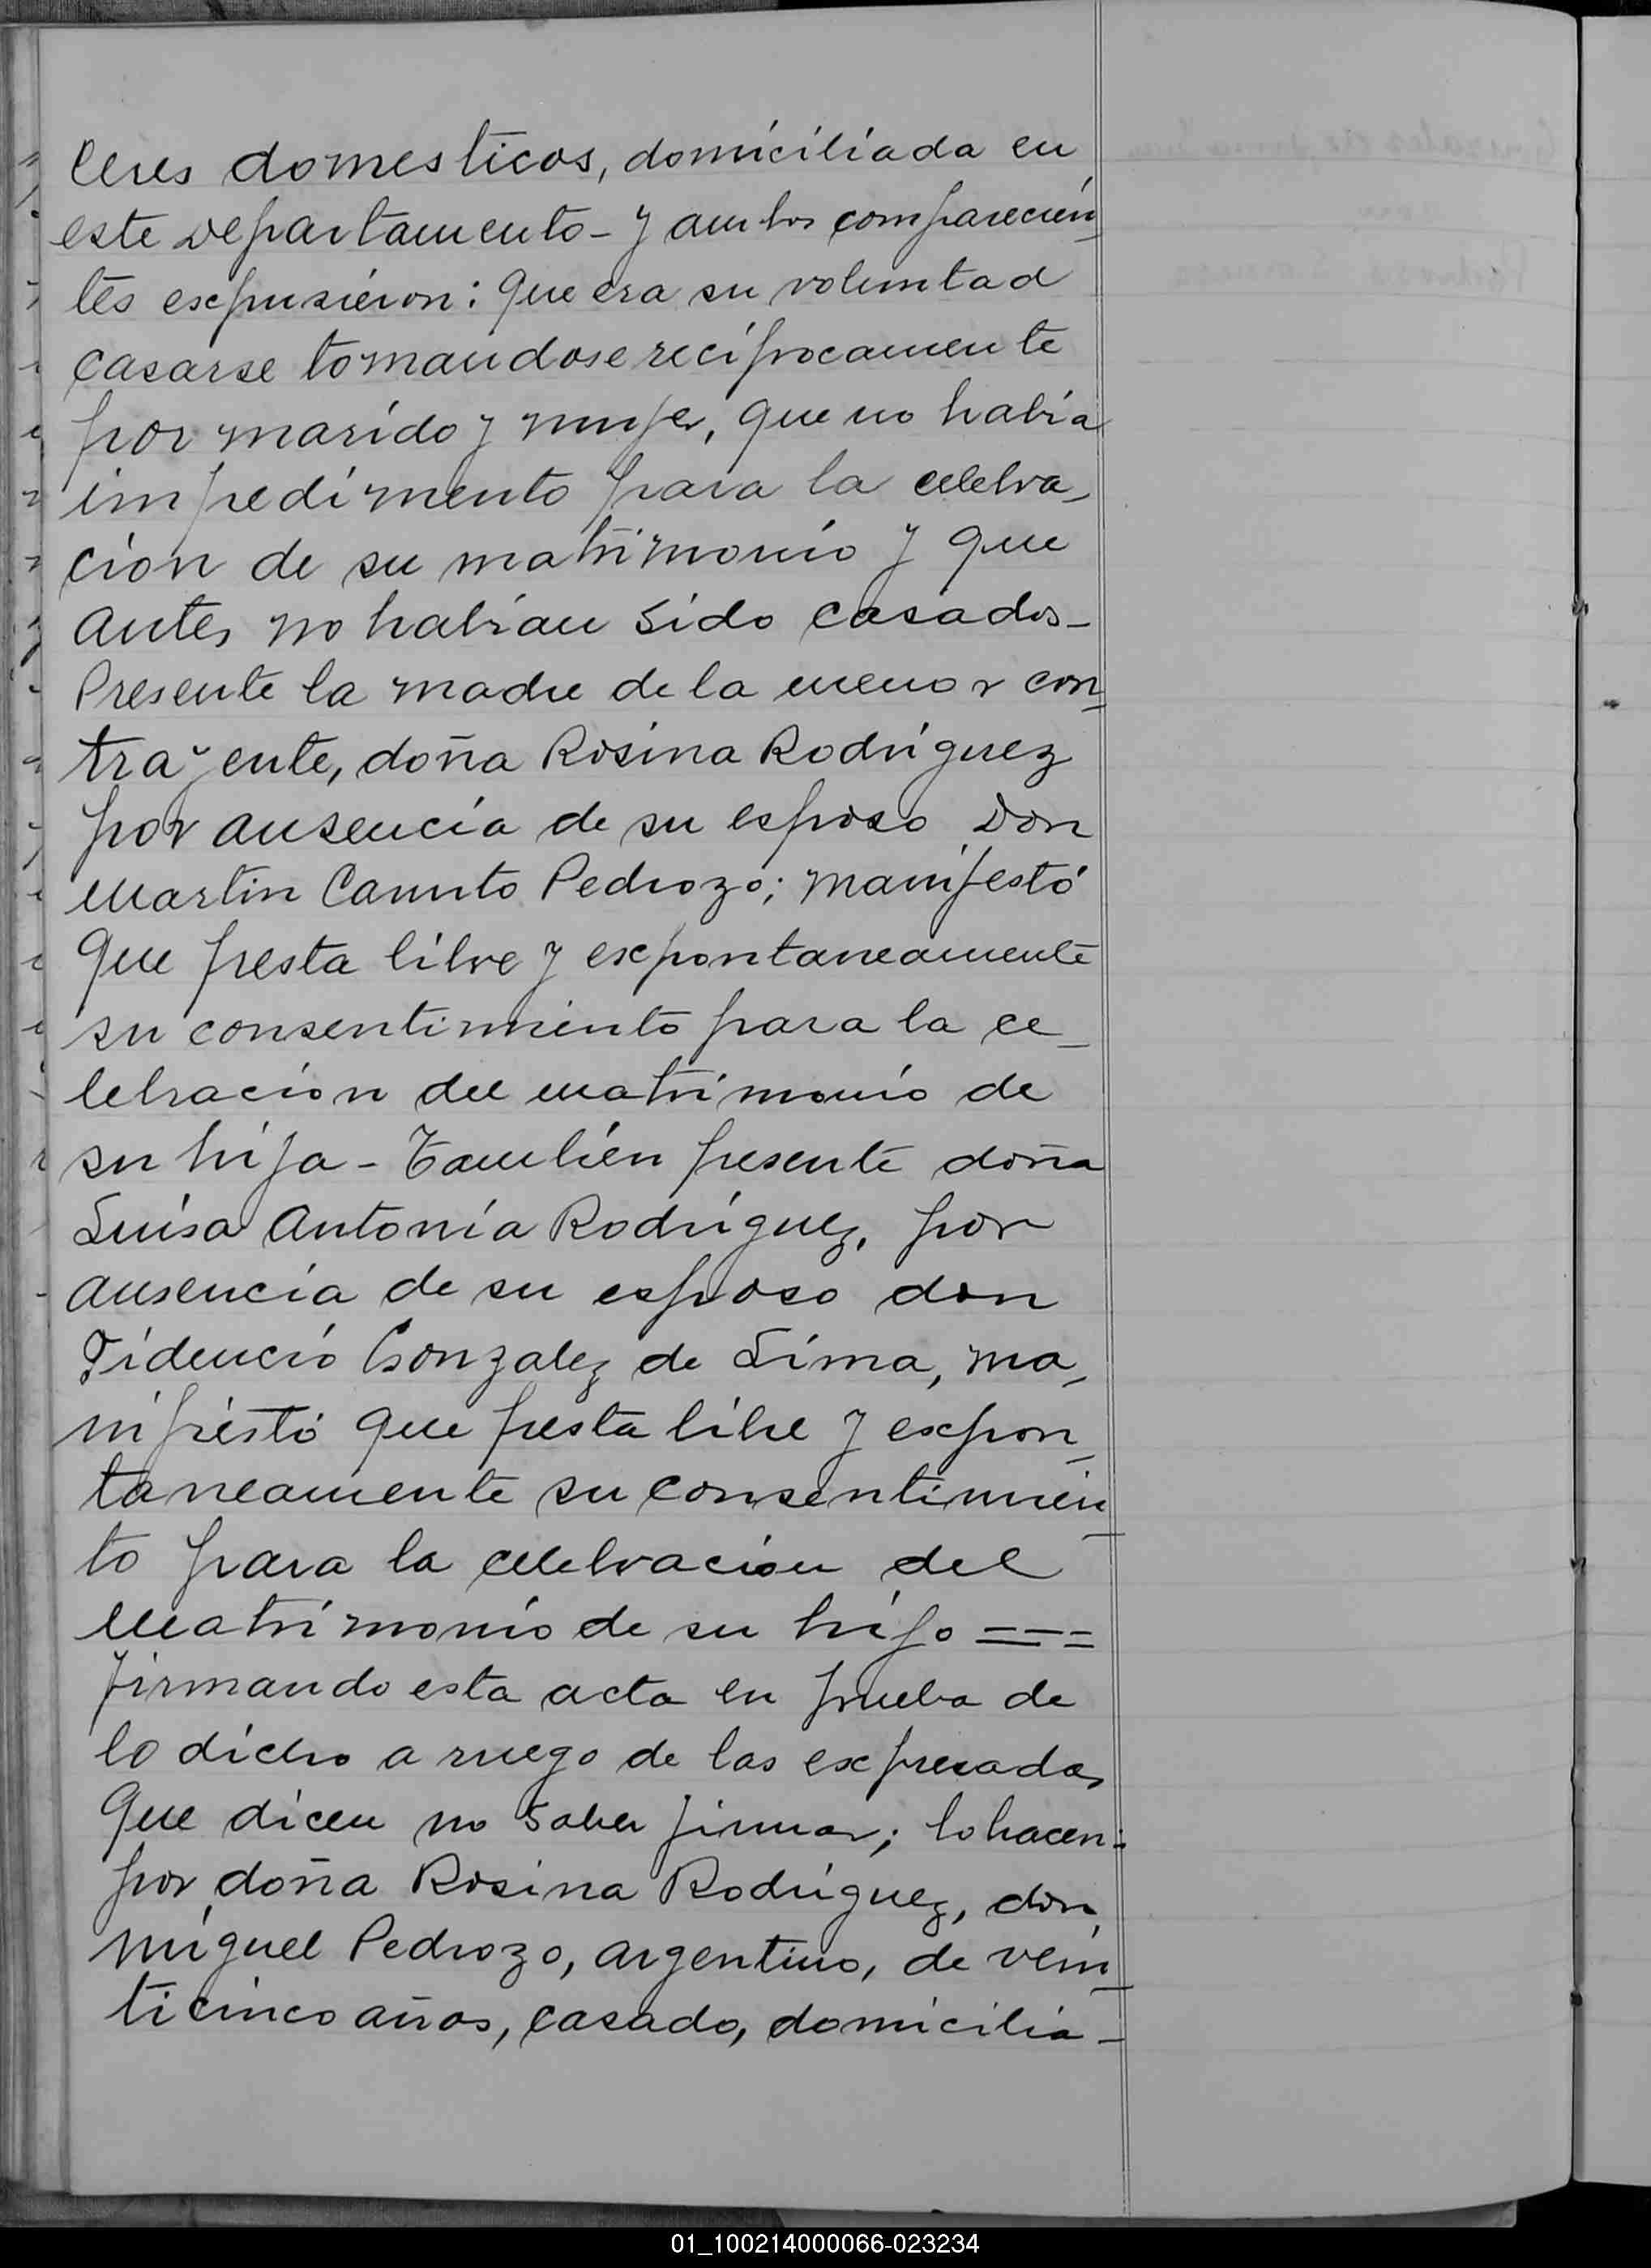 ceres domesticos, domiciliada en
este Departamento - y ambos comparecien
tes expusieron: Que era su voluntad
casarse tomandose reciprocamente
por marido y mujer, que no habia
impedimento para la celebra_
cion de su matrimonio y que
antes no habian sido casados_
Presente la madre de la menor con_
trayente, doña Rosina Rodriguez
por ausencia de su esposo Don
Martin Canuto Pedrozo; manifestó
que presta libre y expontaneamente
su consentimiento para la ce_
lebracion del matrimonio de
su hija - También presente doña
Luisa Antonia Rodriguez, por
ausencia de su esposo don
Fidencio Gonzalez de Lima, ma_
nifiestó que presta libre y expon_
taneamente su consentimien
to para la celebracion del
Matrimonio de su hijo = = =
firmando esta acta en prueba de
lo dicho a ruego de las expresadas
que dicen no saber firmar; lo hacen:
por doña Rosina Rodriguez, don
Miguel Pedrozo, argentino, de vein_
ticinco años, casado, domicilia -
01_100214000066-023234